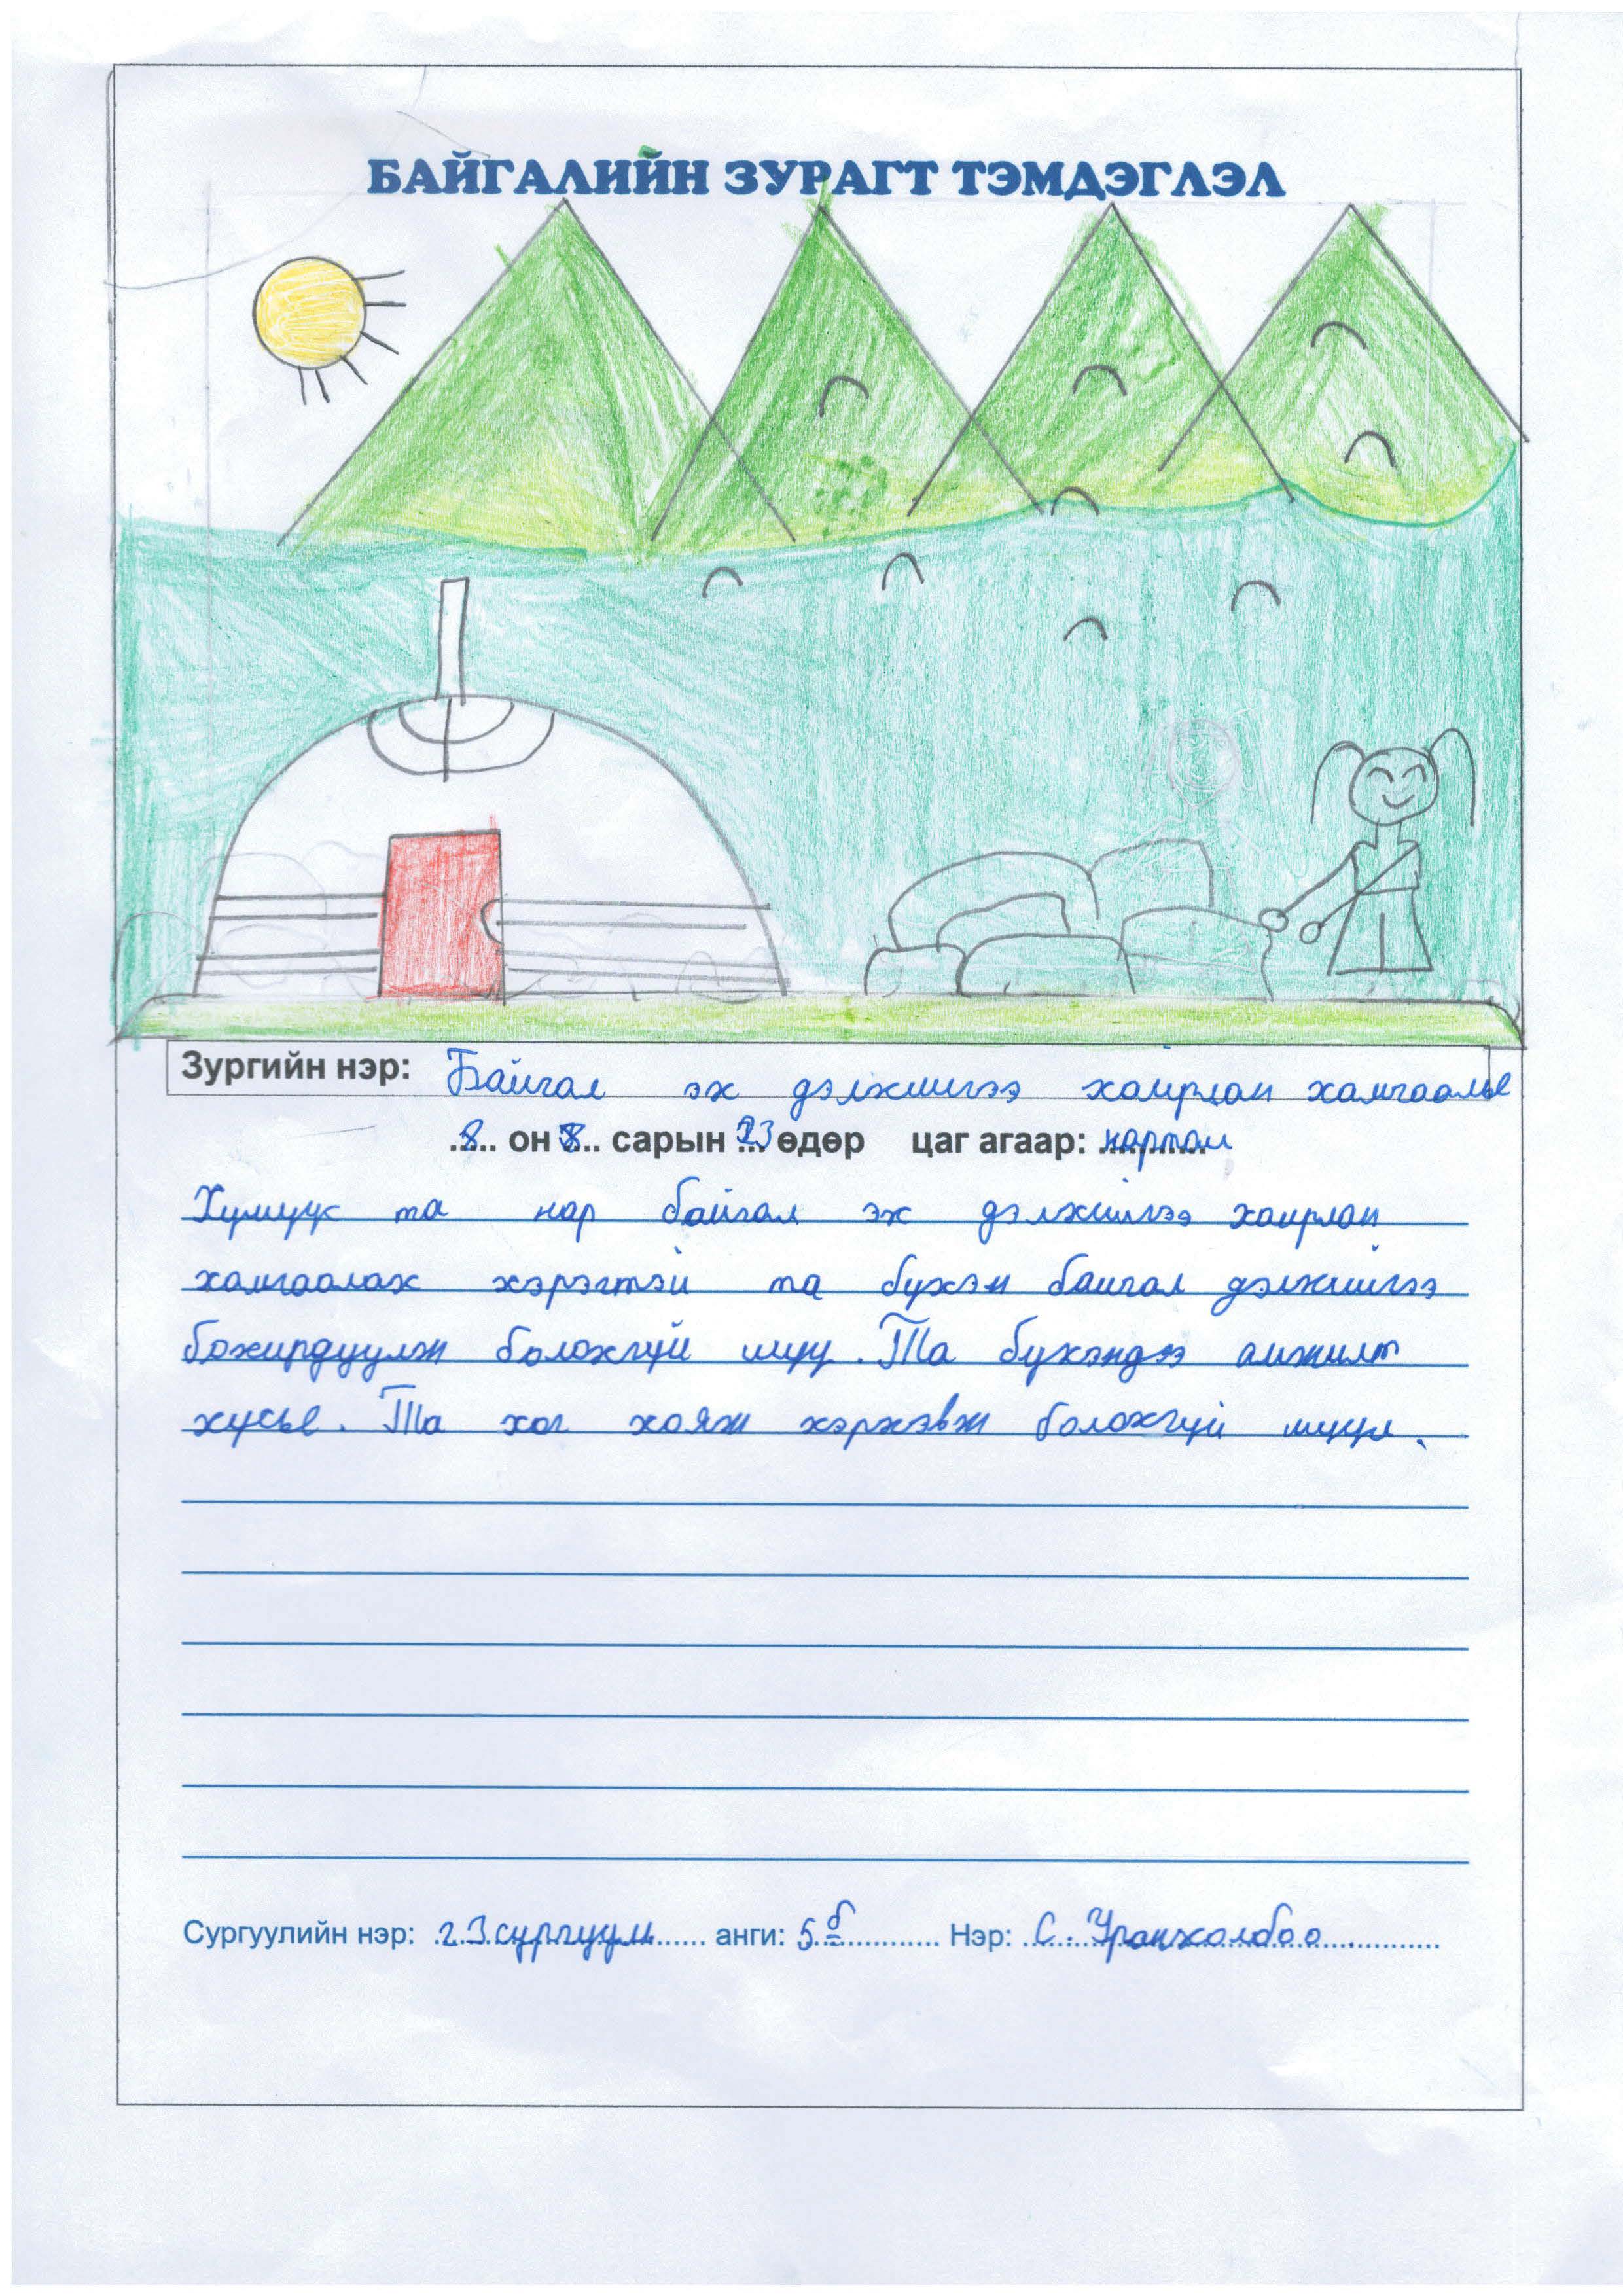 БАЙГАЛИЙН ЗУРАГТ ТЭМДЭГЛЭЛ
Зургийн нэр: Байгал эх дэлхийгээ хайрлан хамгаалъя
8 он 8 сарын 23 өдөр цаг агаар: нартай
Хүмүүс та нар байгал эх дэлхийгээ хайрлан
хамгаалах хэрэгтэй та бүхэн байгал дэлхийгээ
бохирдуулж болохгүй шүү. Та бүхэндээ амжилт
хүсье. Та хог хаяж хэрхэвж болохгүй шүү.
Сургуулийн нэр: 23 сургууль анги: 5б Нэр: С. Уранхолбоо